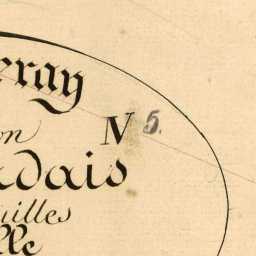 eray
on
N 5.
dais
illes
lle